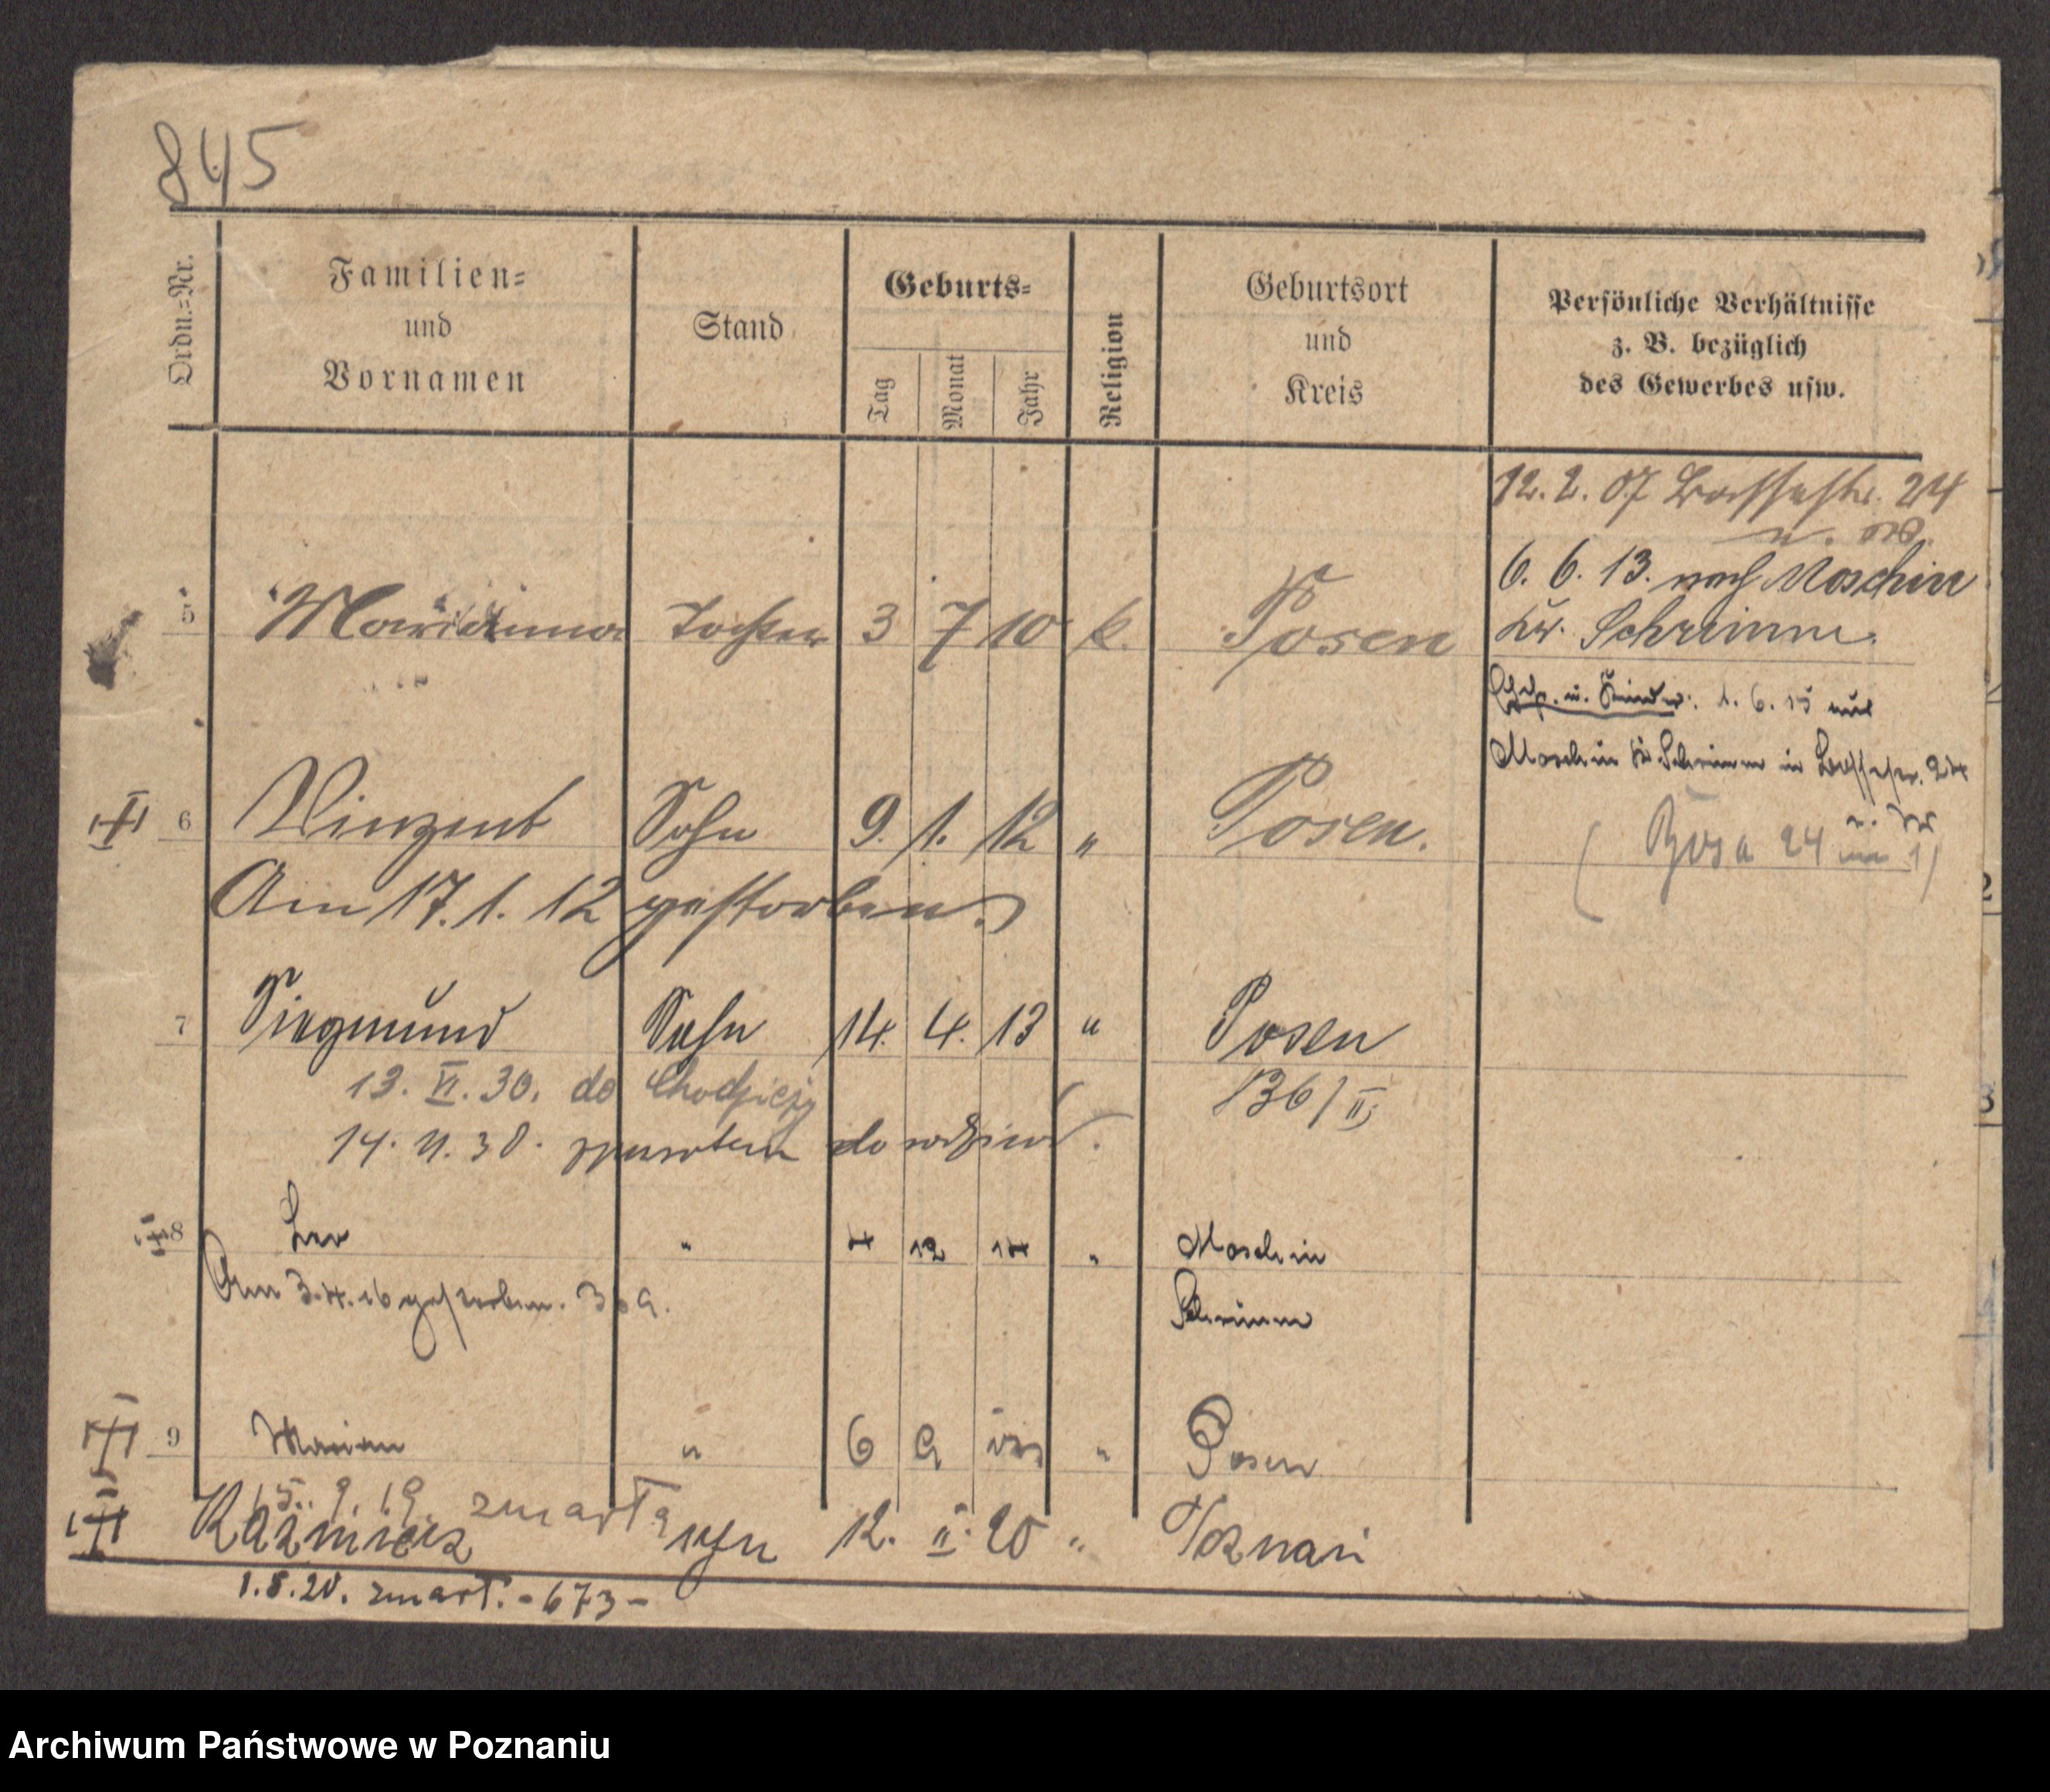 845
Ordn.-Nr.
Familien-
und
Vornamen
Stand
Geburts-
Tag
Monat
Jahr
Religion
Geburtsort
und
Kreis
Persönliche Verhältnisse
z. B. bezüglich
des Gewerbes usw.
12. 2. 07 24
6. 6. 13. nach Moschin
Kr. Schrimm.
5 Marianna Tochter 3 7 10 k. Posen
u. Kinder: 1. 6. 15 aus
Moschin Kr. Schrimm in 24
6 Vinzent Sohn 9. 1. 12 " Posen.
( Bosa 24 1)
Am 17. 1. 12 gestorben.
7 Siegmund Sohn 14. 4. 13 " Posen
13. VI. 30. do Chodzieży
136/II
14. 11. 30. z powrotem do rodziców.
8 Leo " 4 12 14 " Moschin
Schrimm
Am 3. 4. 16 gestorben.
9 Marian " 6 9 " Posen
15. 9. 19. zmarł
Kaźmierz syn 12. II. 20 " Poznań
1. 8. 20. zmarł. - 673 -
Archiwum Państwowe w Poznaniu